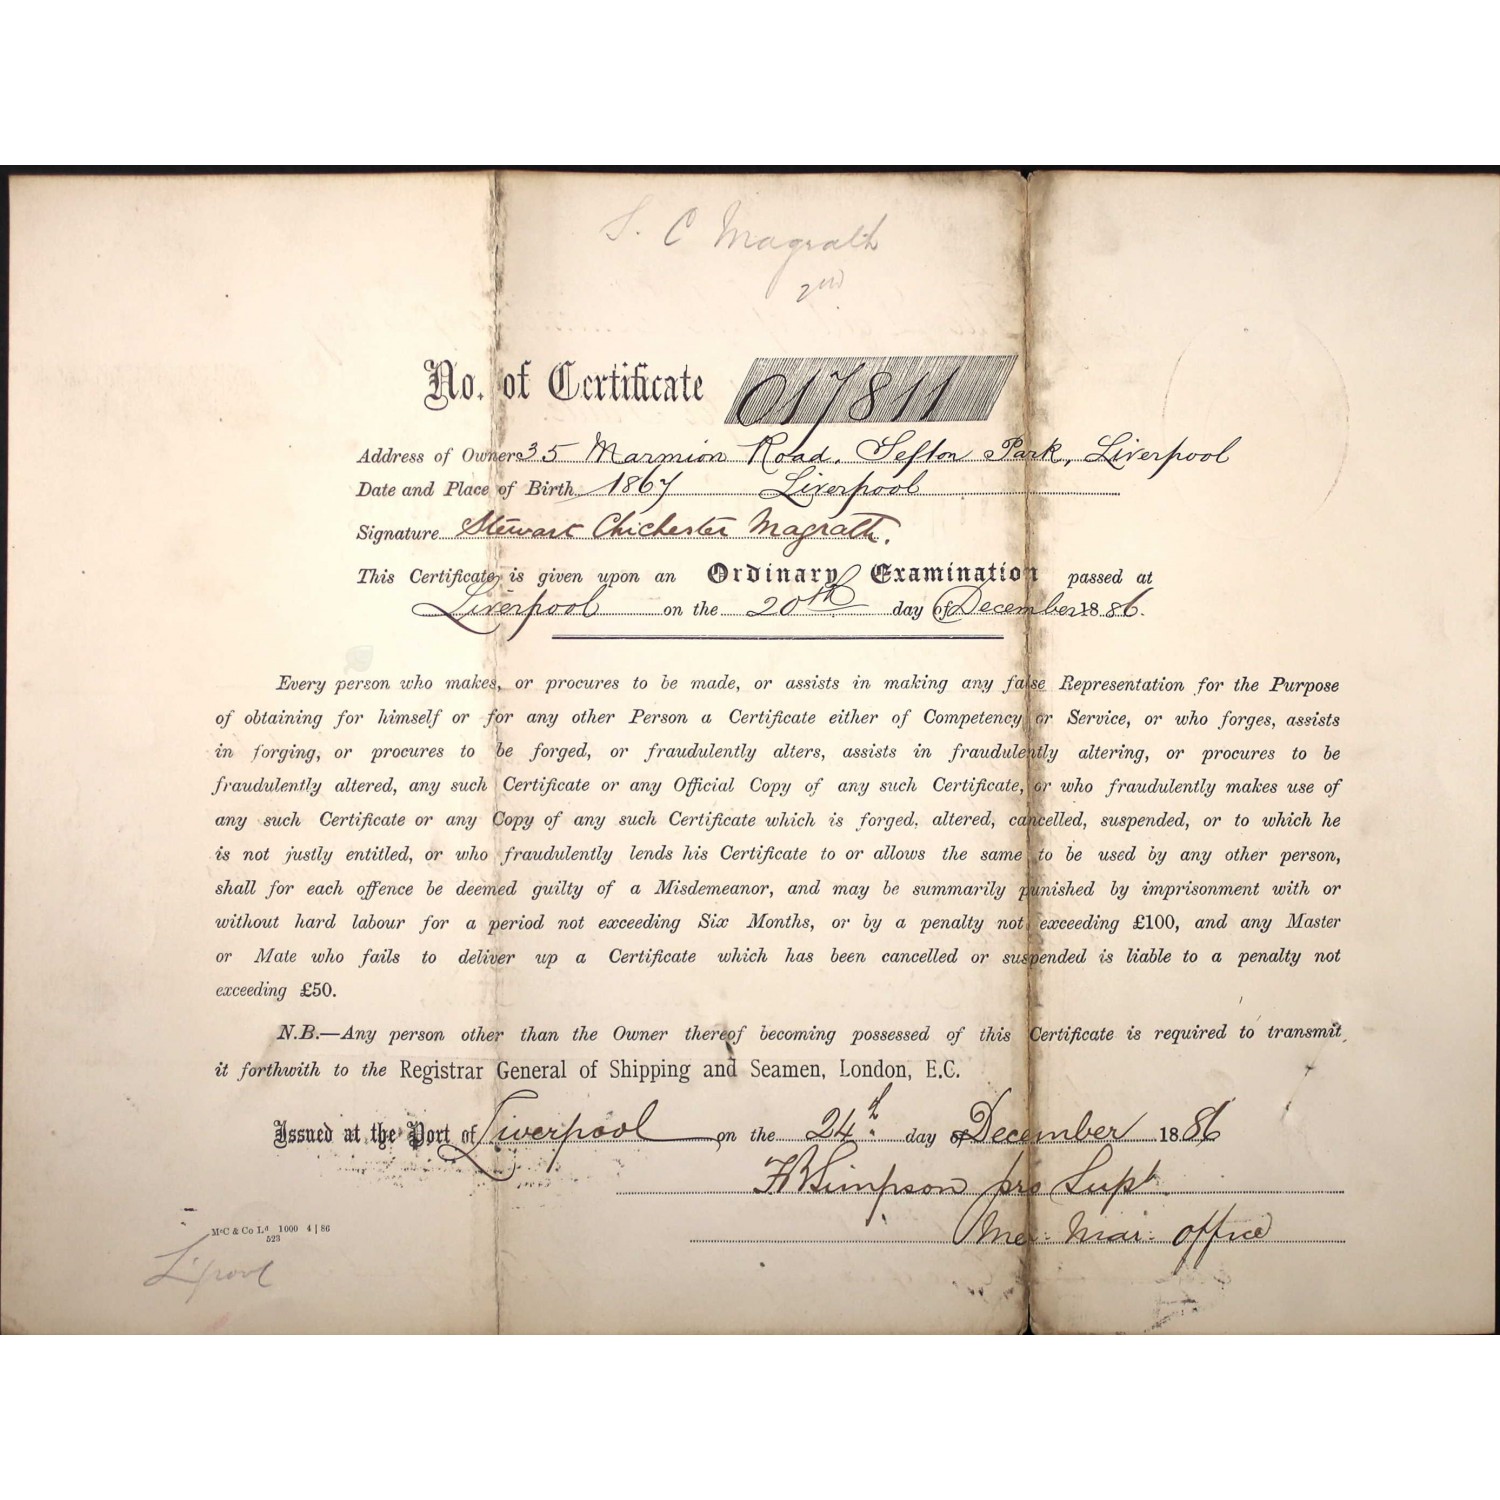 S. C Magrath
2nd
No. of Certificate 017811
Address of Owner 35 Marmion Road, Sefton Park, Liverpool
Date and Place of Birth 1867 Liverpool
Signature Stewart Chichester Magrath.
This Certificate is given upon an Ordinary Examination passed at
Liverpool on the 20th day of December 1886.
Every person who makes, or procures to be made, or assists in making any false Representation for the Purpose
of obtaining for himself or for any other Person a Certificate either of Competency or Service, or who forges, assists
in forging, or procures to be forged, or fraudulently alters, assists in fraudulently altering, or procures to be
fraudulently altered, any such Certificate or any Official Copy of any such Certificate, or who fraudulently makes use of
any such Certificate or any Copy of any such Certificate which is forged, altered, cancelled, suspended, or to which he
is not justly entitled, or who fraudulently lends his Certificate to or allows the same to be used by any other person,
shall for each offence be deemed guilty of a Misdemeanor, and may be summarily punished by imprisonment with or
without hard labour for a period not exceeding Six Months, or by a penalty not exceeding £100, and any Master
or Mate who fails to deliver up a Certificate which has been cancelled or suspended is liable to a penalty not
exceeding £50.
N.B.—Any person other than the Owner thereof becoming possessed of this Certificate is required to transmit
it forthwith to the Registrar General of Shipping and Seamen, London, E.C.
Issued at the Port of Liverpool on the 24th day of December 1886
FB Simpson pro Supt.
Mer: Mar: office
McC & Co Ld 1000 4|86
523
L'pool